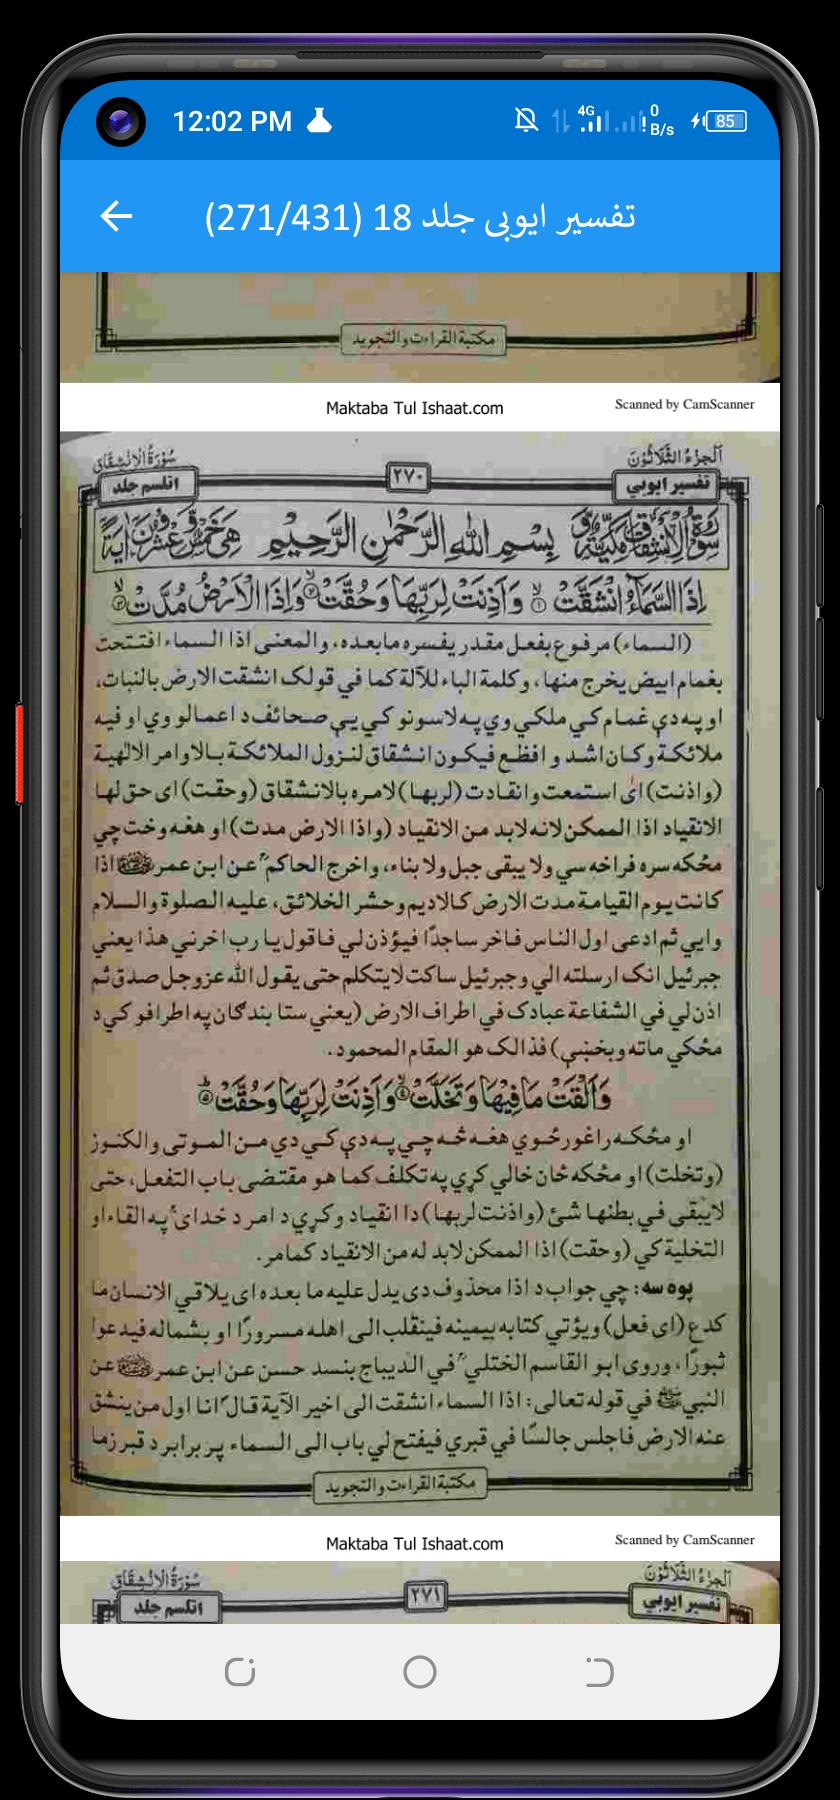 12:02 PM
4G
0
B/s
85
تفسیر ایوبی جلد 18 (271/431)
مکتبة القراءت والتجوید
Maktaba Tul Ishaat.com
Scanned by CamScanner
اَلْجُزْءُ الثَّلَاثُوْنَ
سُوْرَةُ الْاِنْشِقَاق
تفسیر ایوبي
۲۷۰
اتلسم جلد
سُوْرَةُ الْاِنْشِقَاقِ مَكِّيَّةٌ وَّ بِسْمِ اللهِ الرَّحْمٰنِ الرَّحِيْمِ هِيَ خَمْسٌ وَّعِشْرُوْنَ اٰيَةً
اِذَا السَّمَآءُ انْشَقَّتْ ۙ۱ وَ اَذِنَتْ لِرَبِّهَا وَ حُقَّتْ ۙ۲ وَاِذَا الْاَرْضُ مُدَّتْ ۙ۳
(السماء) مرفوع بفعل مقدر یفسره مابعده، والمعنی اذا السماء افتتحت
بغمام ابیض یخرج منها، وکلمة الباء للآلة کما في قولک انشقت الارض بالنبات،
او په دې غمام کي ملکي وي په لاسونو کي یې صحائف د اعمالو وي او فیه
ملائکة وکان اشد و افظع فیکون انشقاق لنزول الملائکة بالاوامر الالهیة
(واذنت) ای استمعت وانقادت (لربها) لامره بالانشقاق (وحقت) ای حق لها
الانقیاد اذا الممکن لانه لابد من الانقیاد (واذا الارض مدت) او هغه وخت چي
مځکه سره فراخه سي ولا یبقی جبل ولا بناء، واخرج الحاکم عن ابن عمر اذا
کانت یوم القیامة مدت الارض کالادیم وحشر الخلائق، علیه الصلوة والسلام
وایي ثم ادعی اول الناس فاخر ساجدًا فیؤذن لي فاقول یا رب اخرني هذا یعني
جبرئیل انک ارسلته الي وجبرئیل ساکت لایتکلم حتی یقول الله عزوجل صدق ثم
اذن لي في الشفاعة عبادک في اطراف الارض (یعني ستا بندگان په اطرافو کي د
مځکي ماته وبخښي) فذالک هو المقام المحمود.
وَاَلْقَتْ مَا فِيْهَا وَ تَخَلَّتْ ۙ۴ وَ اَذِنَتْ لِرَبِّهَا وَ حُقَّتْ ؕ۵
او مځکه راغورځوي هغه څه چي په دې کي دي من الموتی والکنوز
(وتخلت) او مځکه ځان خالي کړي په تکلف کما هو مقتضی باب التفعل، حتی
لایبقی في بطنها شئ (واذنت لربها) دا انقیاد وکړي د امر د خدای په القاء او
التخلیة کي (وحقت) اذا الممکن لابد له من الانقیاد کمامر.
پوه سه: چي جواب د اذا محذوف دی یدل علیه ما بعده ای یلاقي الانسان ما
کدع (ای فعل) ویؤتي کتابه بیمینه فینقلب الی اهله مسرورًا او بشماله فیدعوا
ثبورًا، وروی ابو القاسم الختلي في الدیباج بنسد حسن عن ابن عمر عن
النبي ﷺ في قوله تعالی: اذا السماء انشقت الی اخیر الآیة قال انا اول من ینشق
عنه الارض فاجلس جالسًا في قبري فیفتح لي باب الی السماء پر برابر د قبر زما
مکتبة القراءت والتجوید
Maktaba Tul Ishaat.com
Scanned by CamScanner
اَلْجُزْءُ الثَّلَاثُوْنَ
سُوْرَةُ الْاِنْشِقَاق
تفسیر ایوبي
۲۷۱
اتلسم جلد